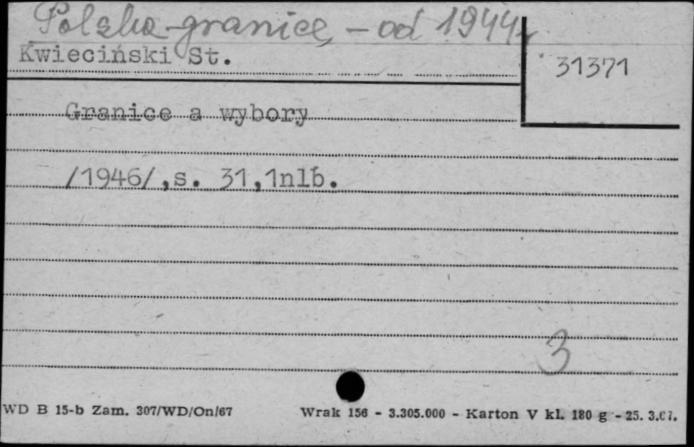 Polska-granice, - od 1944r
Kwieciński St.
31371
Granice a wybory
/1946/,s. 31,1nlb.
3
WD B 15-b Zam. 307/WD/On/67 Wrak 156 - 3.305.000 - Karton V kl. 180 g - 25. 3.67.